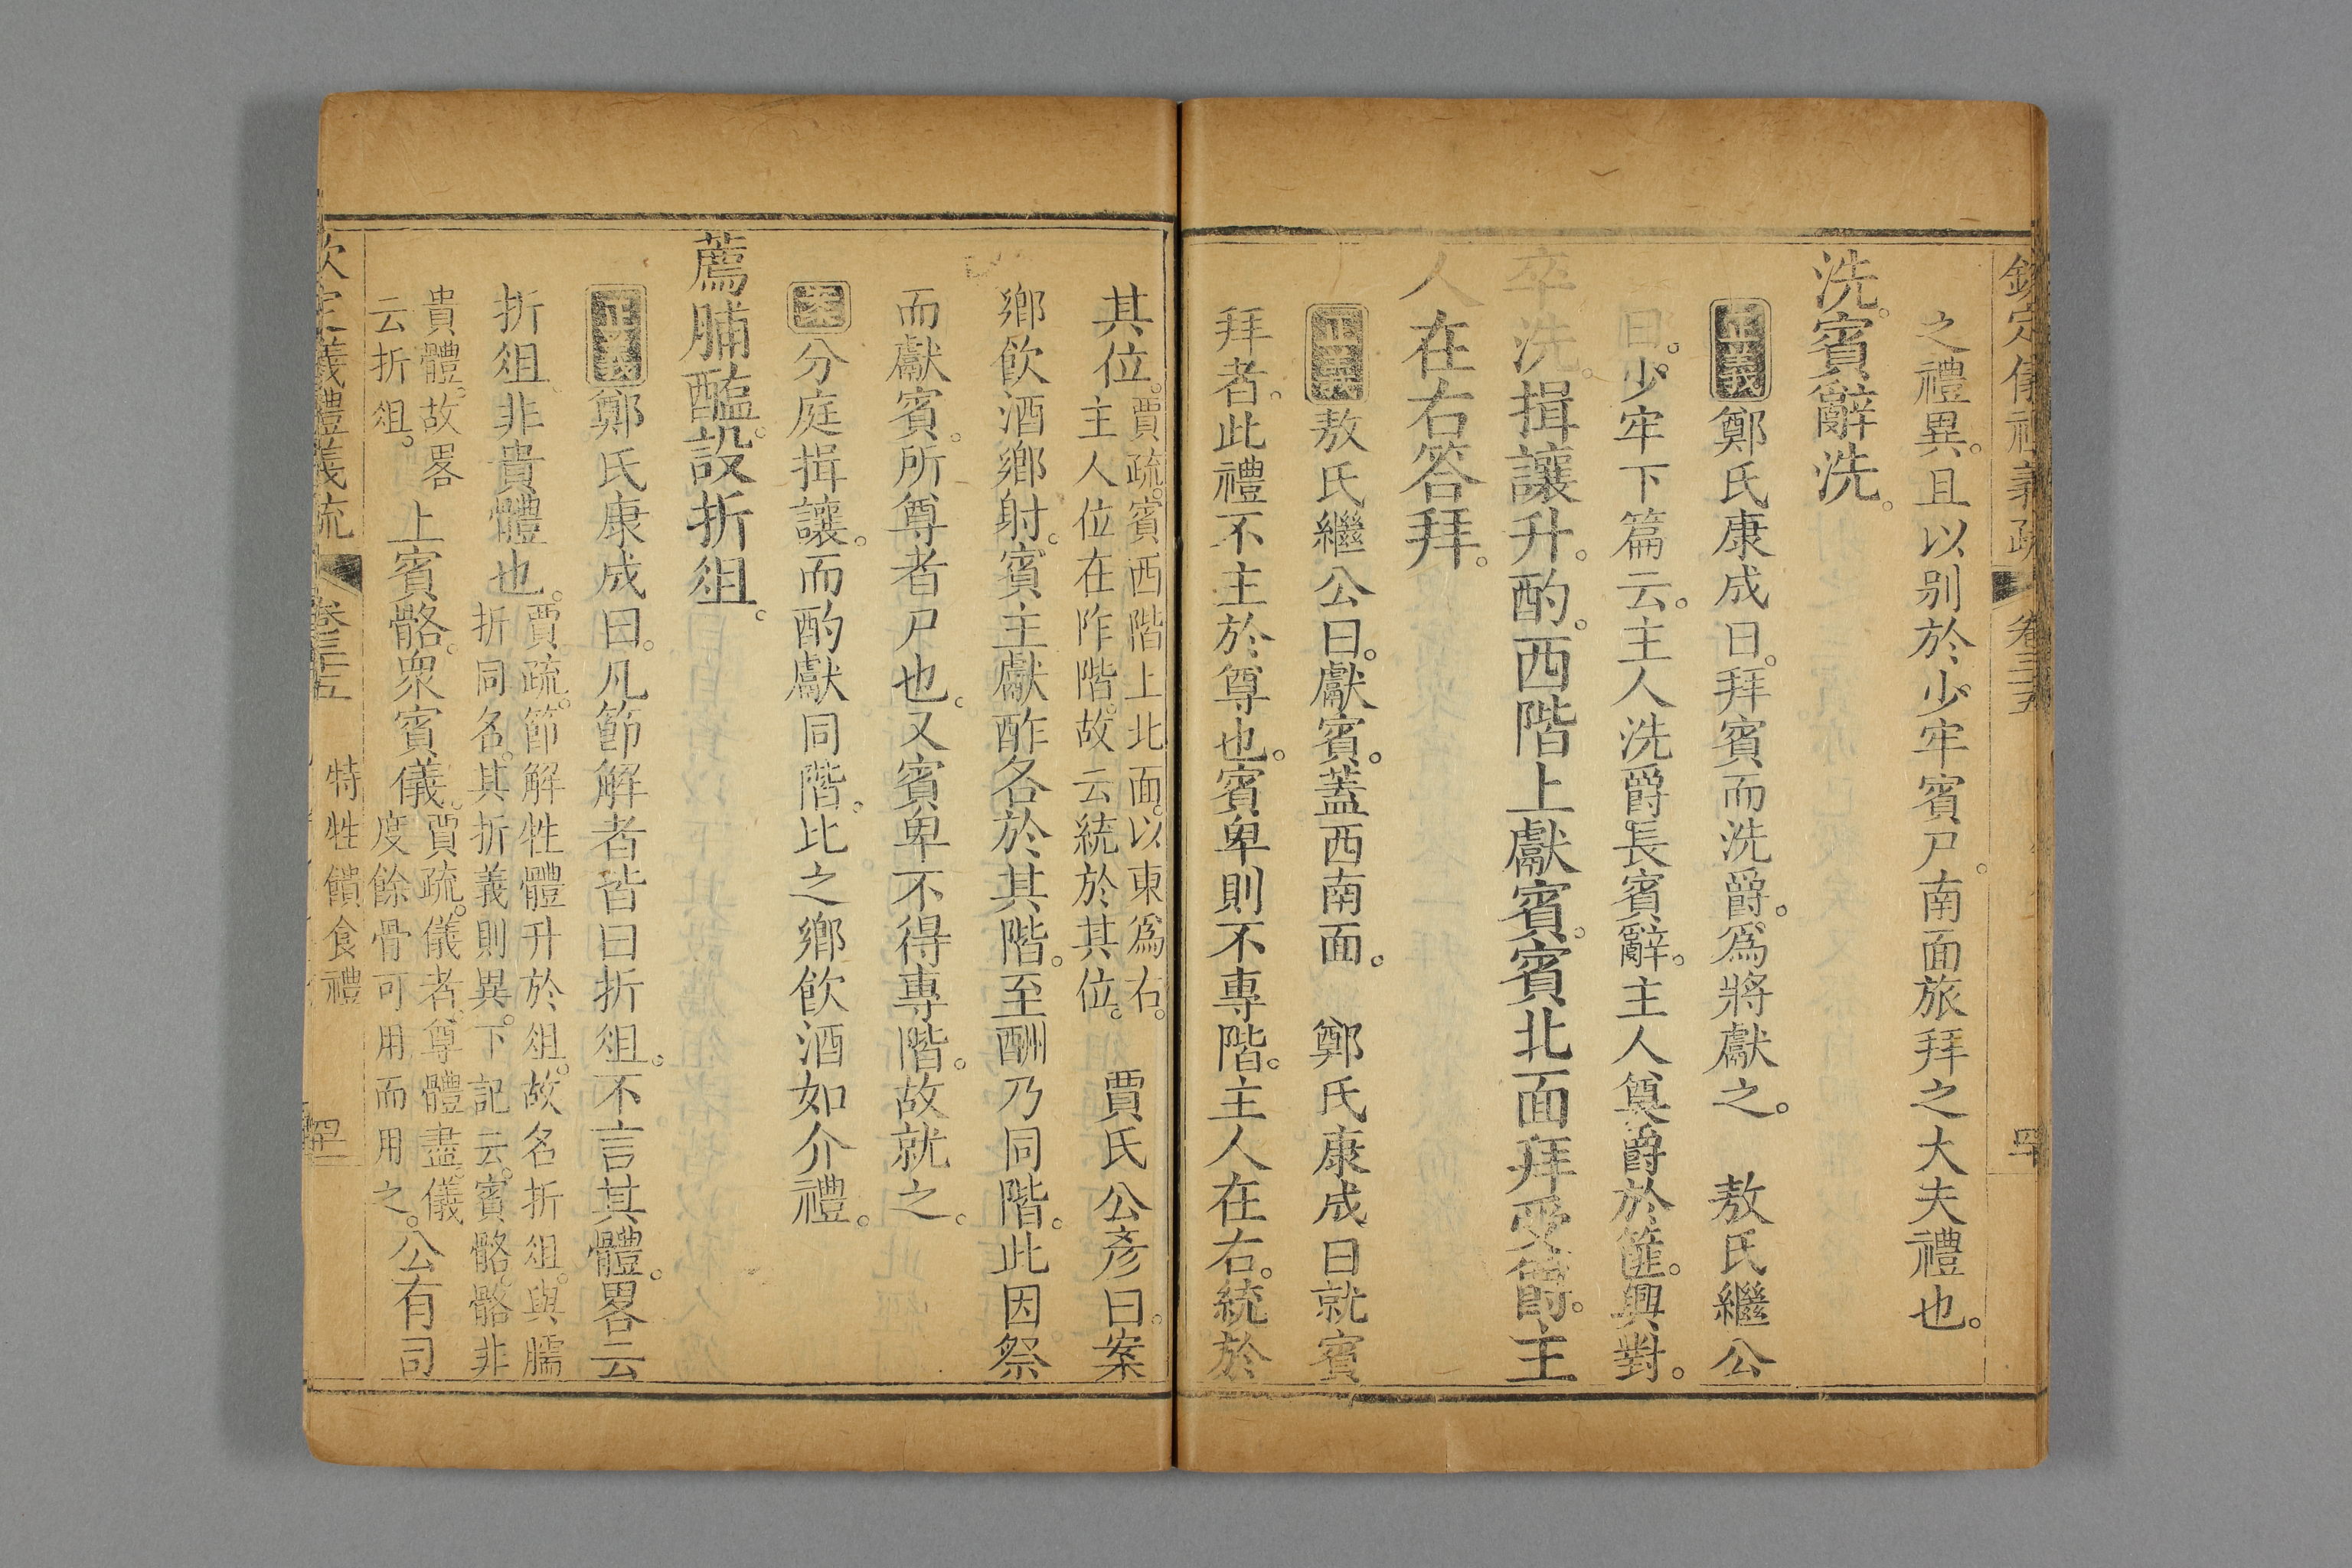 欽定儀禮義疏 卷三十五 四十
之禮異。且以别於少牢賓尸。南面旅拜之大夫禮也。
洗。賓辭洗。
正義 鄭氏康成曰。拜賓而洗爵。爲將獻之。 敖氏繼公
曰。少牢下篇云。主人洗爵。長賓辭。主人奠爵於篚。興對。
卒洗。揖讓升。酌。西階上獻賓。賓北面拜受爵。主
人在右答拜。
正義 敖氏繼公曰。獻賓。蓋西南面。 鄭氏康成曰就賓
拜者。此禮不主於尊也。賓卑則不專階。主人在右。統於
其位。賈疏。賓西階上北面。以東爲右。
主人位在阼階。故云統於其位。 賈氏公彥曰。案
鄉飲酒鄉射。賓主獻酢各於其階。至酬乃同階。此因祭
而獻賓。所尊者尸也。又賓卑不得專階。故就之。
案 分庭揖讓。而酌獻同階。比之鄉飲酒如介禮。
薦脯醢。設折俎。
正義 鄭氏康成曰。凡節解者皆曰折俎。不言其體。畧云
折俎。非貴體也。賈疏。節解牲體升於俎。故名折俎。與臑
折同名。其折義則異。下記云。賓骼。骼非
貴體。故畧
云折俎。 上賓骼。衆賓儀。賈疏。儀者、尊體盡。儀
度餘骨可用而用之。公有司
欽定儀禮義疏 卷三十五 特牲饋食禮 四十一